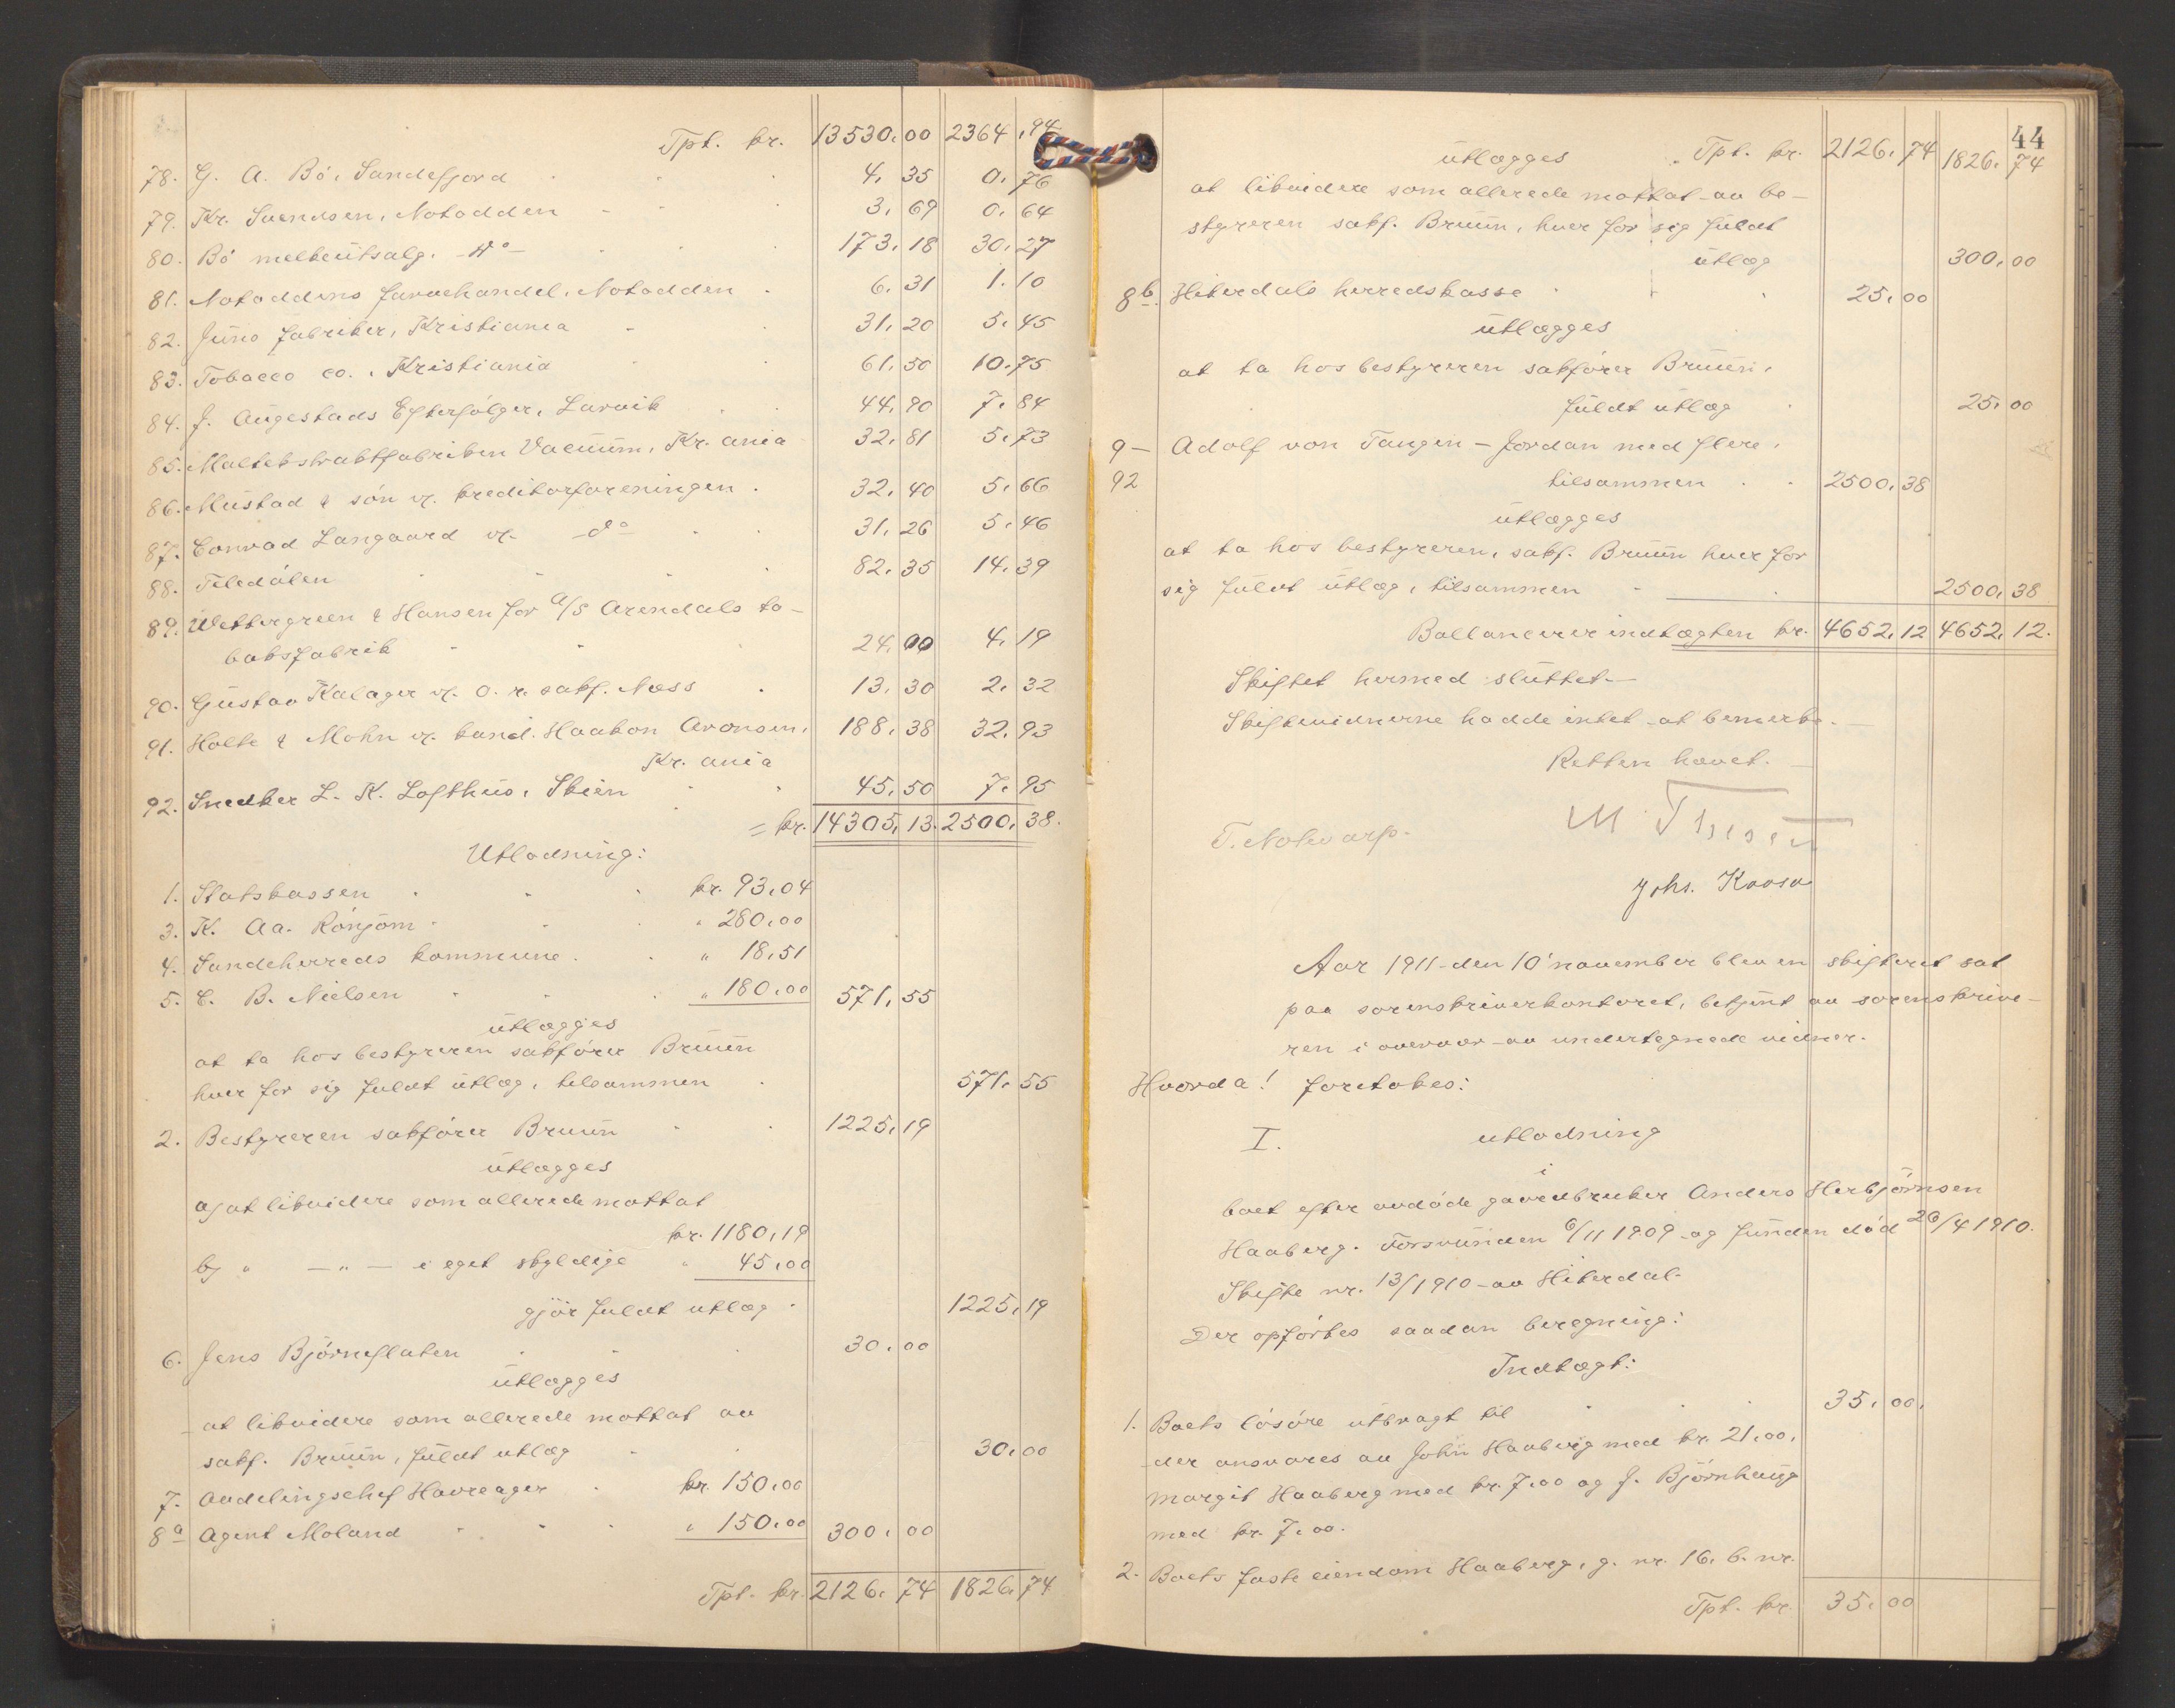 Tpt. kr. 13530,00 2364,94
78. G. A. Bö, Sandefjord 4,35 0,76
79. Kr. Svendsen, Notodden 3,69 0,64
80. Bö melkeutsalg. -do- 173,18 30,27
81. Notoddens farvehandel, Notodden 6,31 1.10
82. Juno fabriker, Kristiania 31,20 5,45
83. Tobacco co., Kristiania 61,50 10,75
84. J. Augestads Efterfølger, Larvik 44,90 7,84
85. Maltekstraktfabriken Vacuum, Kr.ania 32,81 5,73
86. Mustad & søn v. kreditorforeningen 32,40 5,66
87. Conrad Langaard v. -do- 31,26 5,46
88. Teledölen 82,35 14,39
89. Wettergreen & Hansen for A/S Arendals to-
baksfabrik 24,00 4,19
90. Gustav Kalager v. o.r.sakf. Næss 13,30 2,32
91. Holte & Mohn v. kand. Haakon Aronsen, 188,38 32,93
Kr.ania
92. Snedker L. K. Lofthus, Skien 45,50 7,95
= kr. 14305,13. 2500,38.
Utlodning:
1. Statskassen kr. 93,04
3. K. Aa. Rönjom " 280,00
4. Sandeherreds kommune " 18,51
5. C. B. Nielsen " 180,00 571,55
utlægges
at ta hos bestyreren sakfører Bruun
hver for sig fuldt utlæg, tilsammen 571,55
2. Bestyreren sakfører Bruun 1225,19
utlægges
a) at likvidere som allerede mottat
kr. 1180,19
b) " — " — i eget skyldige " 45,00
gjör fuldt utlæg 1225,19
6. Jens Björneflaten 30,00
utlægges
at likvidere som allerede mottat av
sakf. Bruun, fuldt utlæg 30,00
7. Avdelingschef Havreager kr. 150,00
8a Agent Moland " 150,00 300,00
Tpt. kr. 2126,74 1826,74
44
Tpt. kr. 2126,74 1826,74
utlægges
at likvidere som allerede mottat av be-
styreren sakf. Bruun, hver for sig fuldt
utlæg 300,00
8b. Hiterdals herredskasse 25,00
utlægges
at ta hos bestyreren sakfører Bruun,
fuldt utlæg 25,00
9 — Adolf von Tangen - Jordan med flere,
92 tilsammen 2500,38
utlægges
at ta hos bestyreren, sakf. Bruun hver for
sig fuldt utlæg, tilsammen 2500,38
Ballancerer indtægten kr. 4652,12 4652,12.
Skiftet hermed sluttet.—
Skiftevidnerne hadde intet at bemerke.—
Retten hævet.—
T. Notevarp.
Johs. Kaasa
Aar 1911 den 10' november blev en skifteret sat
paa sorenskriverkontoret, betjent av sorenskrive-
ren i overvær av undertegnede vidner.
Hvorda! foretokes:
I. utlodning
i
boet efter avdøde gaardbruker Anders Herbjörnsen
Haaberg. Forsvunden 6/11 1909 og funden död 26/4 1910.
Skifte nr. 13/1910 av Hiterdal.
Der opførtes saadan beregning:
Indtægt:
1. Boets lösöre utbragt til 35,00,
der ansvares av John Haaberg med kr. 21,00,
Margit Haaberg med kr. 7,00 og J. Björnhaug
med kr. 7,00.
2. Boets faste eiendom Haaberg, g. nr. 16, b. nr.
Tpt. kr. 35,00